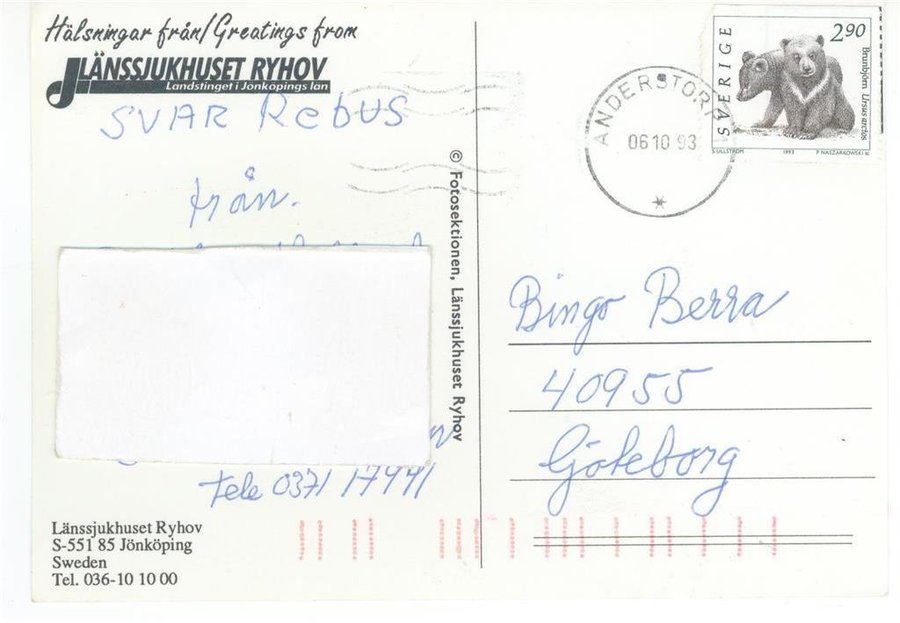 Hälsningar från/Greatings from
LÄNSSJUKHUSET RYHOV
Landstinget i Jönköpings län
SVAR Rebus
från.
Tele 0371 17441
Länssjukhuset Ryhov
S-551 85 Jönköping
Sweden
Tel. 036-10 10 00
© Fotosektionen, Länssjukhuset Ryhov
ANDERSTORP
06 10 93
SVERIGE
2.90
Brunbjörn Ursus arctos
S ULLSTRÖM 1993 P NASZARKOWSKI sc
Bingo Berra
40955
Göteborg